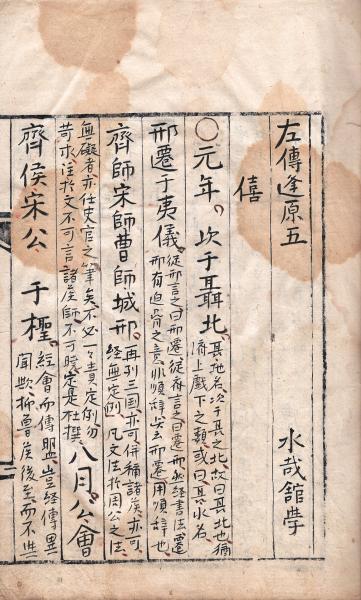 左傳逢原五　水哉館學
僖
○元年。次于聶北。聶地名次于聶之北故曰聶北也猶濟上戲下之類或曰聶水名
邢遷于夷儀。從邢言之曰邢遷從齊言之曰遷邢此經書法遷邢有迫脅之意非順辭矣邢遷用順辭也
齊師宋師曹師城邢。再列三國亦可併稱諸侯亦可經無定例凡文法於周公之法
無礙者亦任史官之筆矣不必一々責定例勿苛求注於文不可言諸侯師不可曉定是杜撰 八月公會
齊侯宋公　于檉。經會而傳盟豈經傳異聞歟抑魯侯後至而不